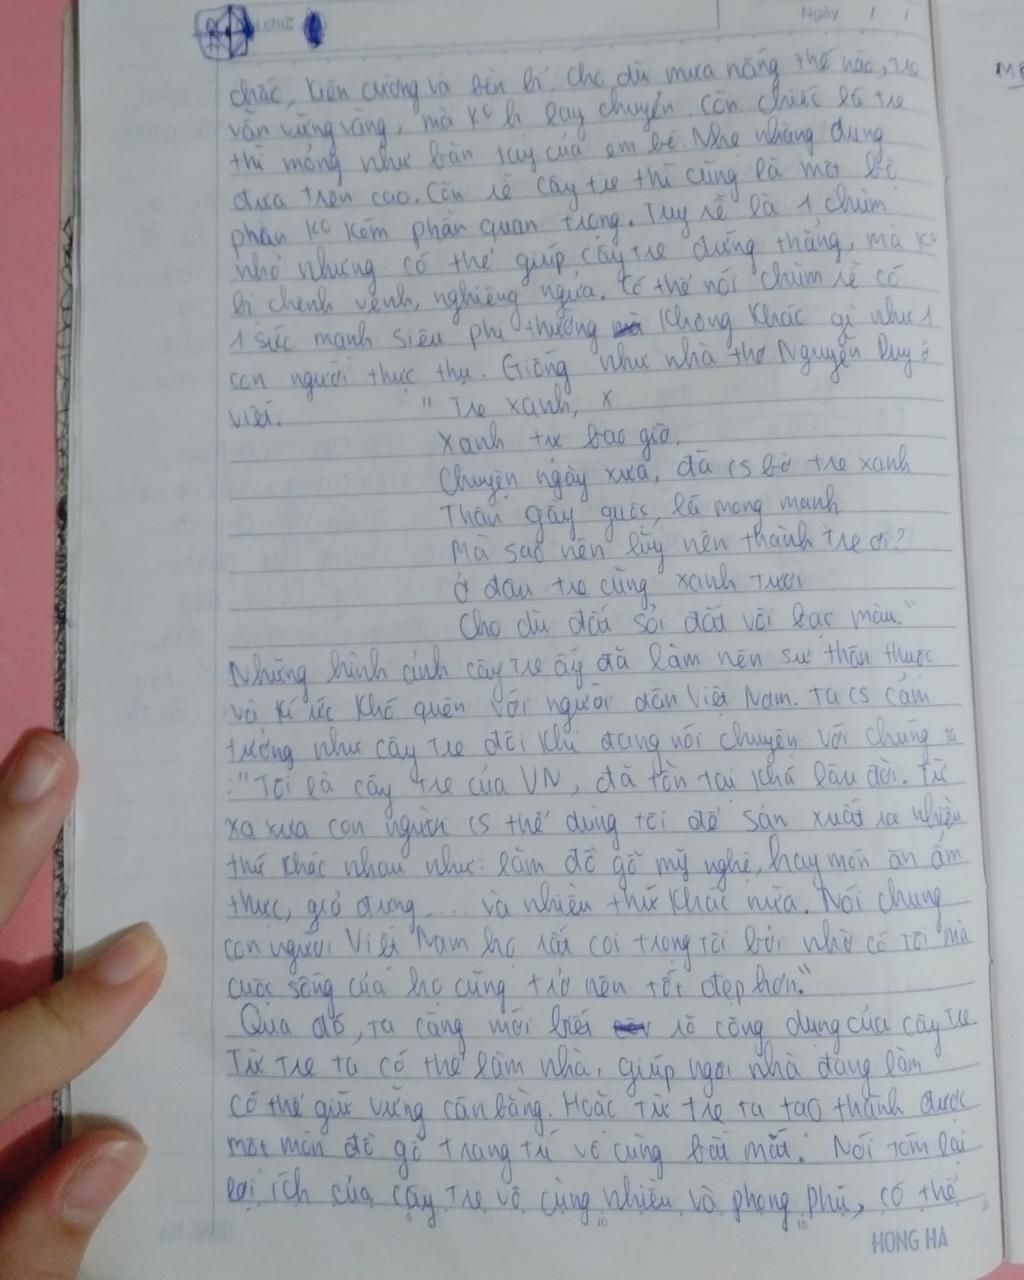 Ngày / /
chắc, kiên cường và bền bỉ. Cho dù mưa nắng thế nào, tre
vẫn vững vàng, mà ko bị lay chuyển. Còn chiếc lá tre
thì mỏng như bàn tay của em bé. Nhẹ nhàng đung
đưa trên cao. Còn rễ cây tre thì cũng là một bộ
phận ko kém phần quan trọng. Tuy rễ là 1 chùm
nhỏ nhưng có thể giúp cây tre đứng thẳng, mà ko
bị chênh vênh, nghiêng ngửa. Có thể nói chùm rễ có
1 sức mạnh siêu phi thường không khác gì như 1
con người thực thụ. Giống như nhà thơ Nguyễn Duy
viết:
" Tre xanh, x
Xanh tự bao giờ,
Chuyện ngày xưa, đã cs bờ tre xanh
Thân gầy guộc, lá mong manh
Mà sao nên lũy nên thành tre ơi?
Ở đâu tre cũng xanh tươi
Cho dù đất sỏi đất vôi bạc màu."
Những hình ảnh cây tre ấy đã làm nên sự thân thuộc
và kí ức khó quên với người dân Việt Nam. Ta cs cảm
tưởng như cây tre đôi khi đang nói chuyện với chúng ta
:"Tôi là cây tre của VN, đã tồn tại khá lâu đời. Từ
xa xưa con người cs thể dùng tôi để sản xuất ra nhiều
thứ khác nhau như: làm đồ gỗ mỹ nghệ, hay món ăn ẩm
thực, giỏ đựng.... và nhiều thứ khác nữa. Nói chung
con người Việt Nam họ rất coi trọng tôi bởi nhờ có tôi mà
cuộc sống của họ cũng trở nên tốt đẹp hơn."
Qua đó, ta càng mới biết rõ công dụng của cây tre
Từ tre ta có thể làm nhà, giúp ngôi nhà đang làm
có thể giữ vững cân bằng. Hoặc từ tre ta tạo thành được
một món đồ gỗ trang trí vô cùng bắt mắt. Nói tóm lại
lợi ích của cây tre vô cùng nhiều và phong phú, có thể
10 15
HONG HA